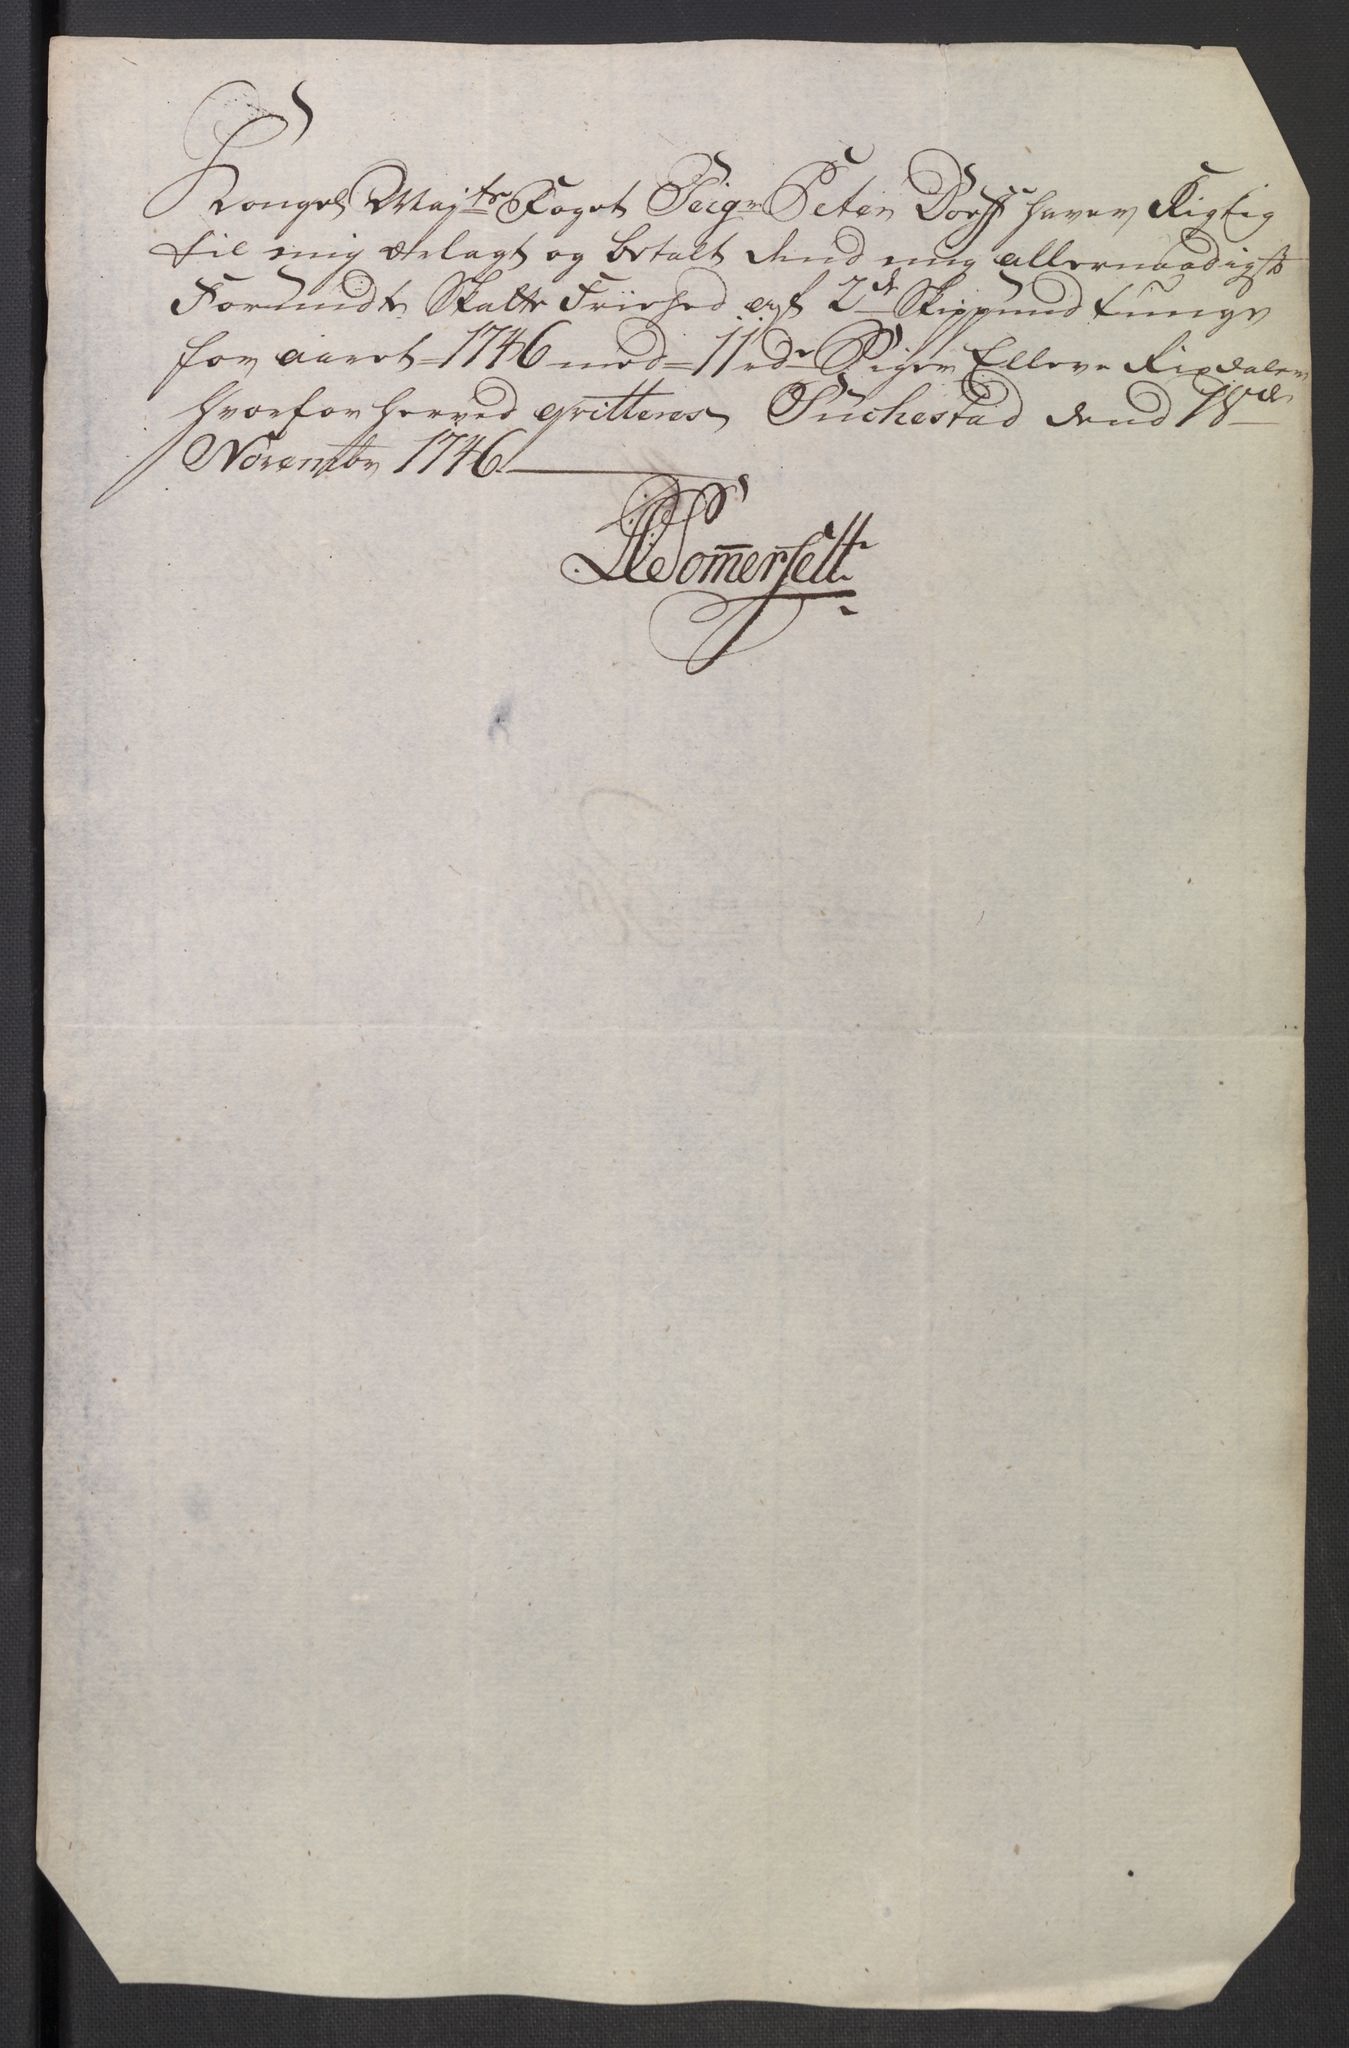 Kongel Maj:ts Foget Seig:r Peter Dorff haver Rigtig
til mig erlagt og betalt dend mig allernaadigst
Forundte Skatte Friehed af 2de Skippund tunge
for aaret 1746 med 11 rdr Siger Elleve Rixdaler
hvorfor herved qvitteres Suchestad dend 18de
November 1746
Somerfelt